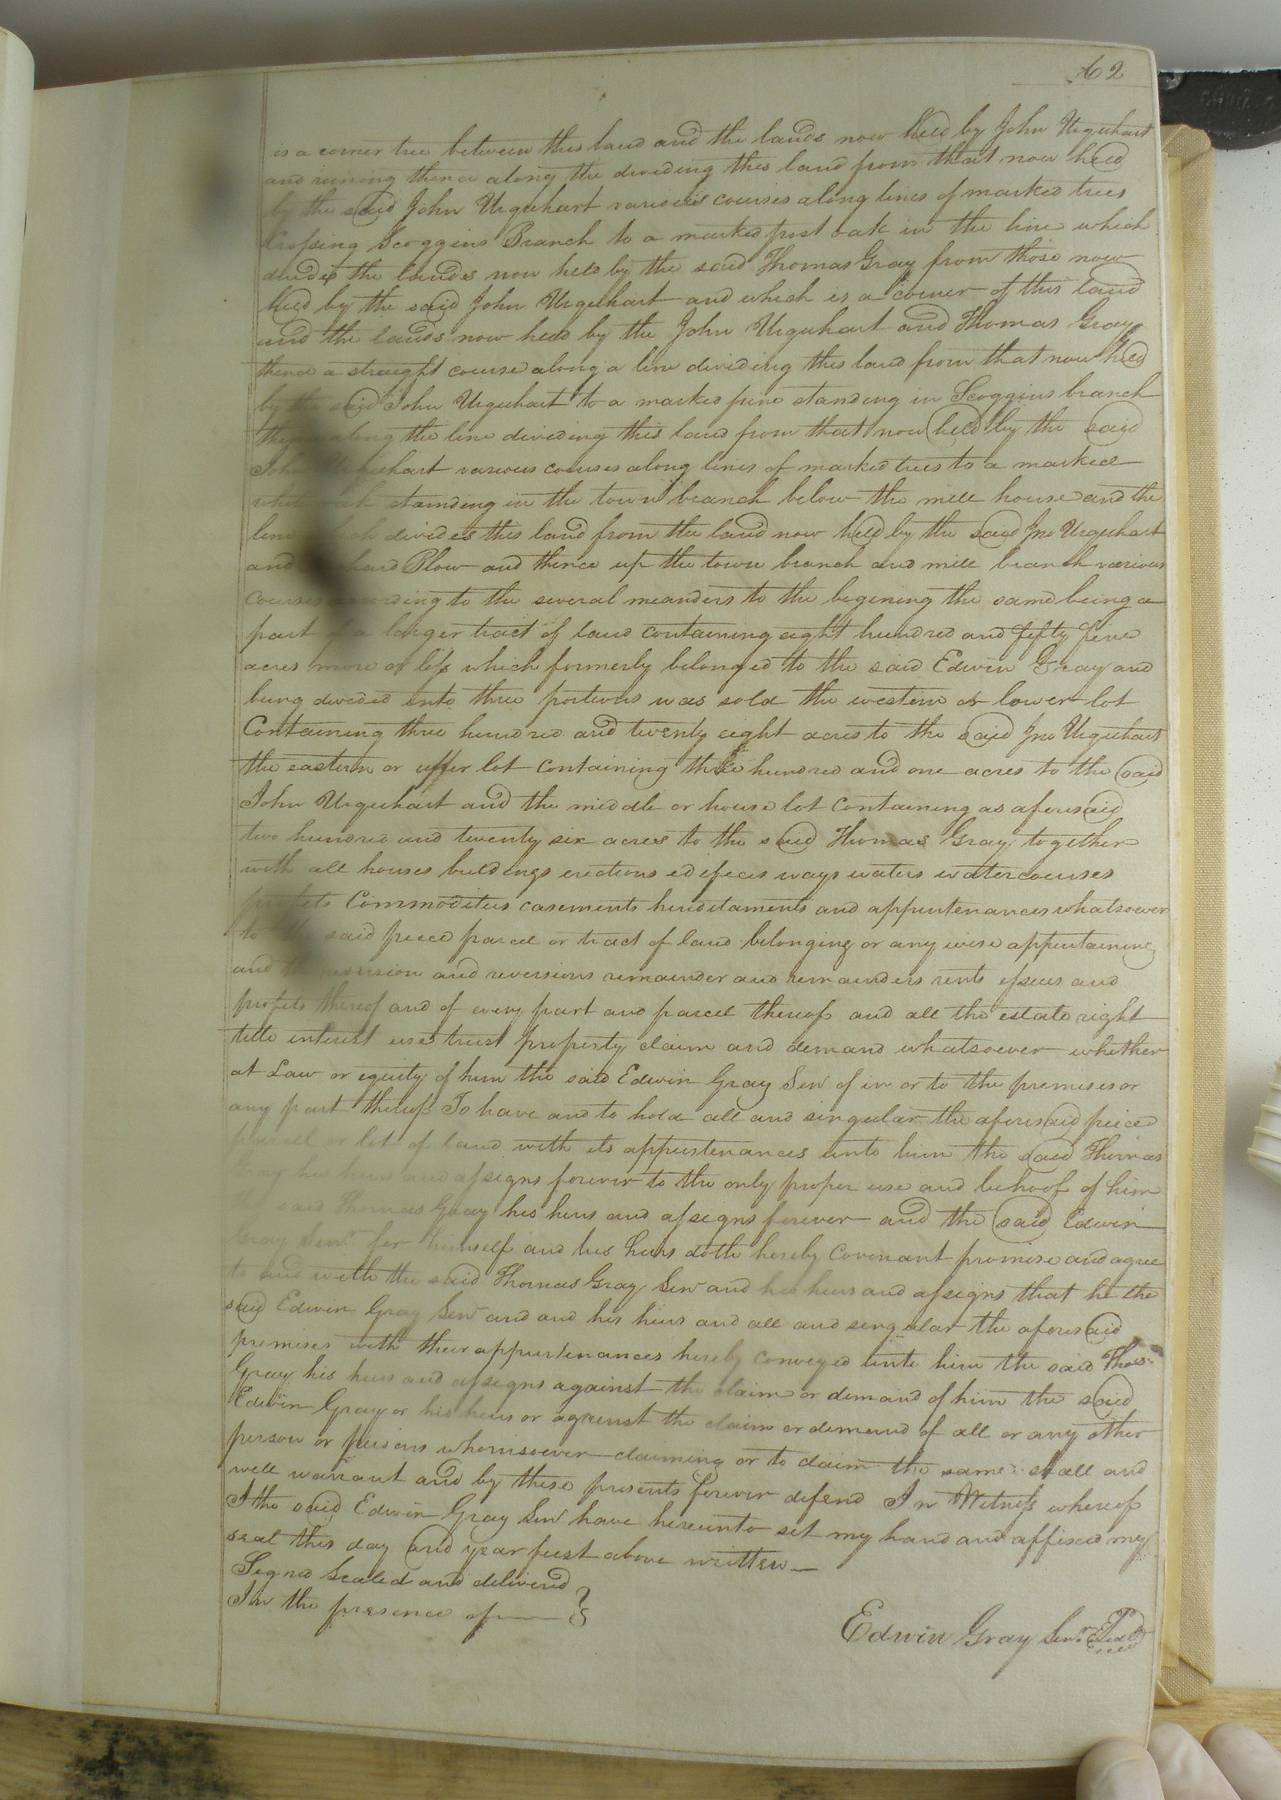 62
is a corner tree between this land and the lands now held by John Urquhart
and runing thence along the dividing this land from that now held
by the said John Urquhart various courses along lines of marked trees
Crossing Scoggins Branch to a marked post oak in the line which
divides the lands now held by the said Thomas Gray from those now
held by the said John Urquhart and which is a corner of this land
and the lands now held by the John Urquhart and Thomas Gray
thence a straight course along a line dividing this land from that now held
by the said John Urquhart to a marked pine standing in Scoggins branch
thence along the line dividing this land from that now held by the said
John Urquhart various courses along lines of marked trees to a marked
white oak standing in the town branch below the mill house and the
line which divides this land from the land now held by the said Jno Urquhart
and Blow and thence up the town branch and mill branch various
courses according to the several meanders to the begining the same being a
part of a larger tract of land containing eight hundred and fifty five
acres more or less which formerly belonged to the said Edwin Gray and
being divided into three portions was sold the western or lower lot
Containing three hundred and twenty eight acres to the said Jno Urquhart
the eastern or upper lot containing three hundred and one acres to the said
John Urquhart and the middle or house lot containing as aforesaid
two hundred and twenty six acres to the said Thomas Gray together
with all houses buildings erections edifices ways waters watercourses
profits Commodities easements hereditaments and appurtenances whatsoever
to the said piece parcel or tract of land belonging or any wise appurtaining
and the reversion and reversions remainder and remainders rents issues and
profits thereof and of every part and parcel thereof and all the estate right
title interest use trust property claim and demand whatsoever whether
at Law or equity of him the said Edwin Gray Senr of in or to the premises or
any part thereof To have and to hold all and singular the aforesaid peice
parcell or lot of land with its appurtenances unto him the said Thomas
Gray his heirs and assigns forever to the only proper use and behoof of him
said Thomas Gray his heirs and assigns forever and the said Edwin
Gray Senr for himself and his heirs doth hereby Covenant promise and agree
to and with the said Thomas Gray Senr and his heirs and assigns that he the
said Edwin Gray Senr and and his heirs and all and singular the aforesaid
premises with their appurtenances hereby conveyed unto him the said Thos
Gray his heirs and assigns against the claim or demand of him the said
Edwin Gray or his heirs or against the claim or demand of all or any other
person or persons whomsoever claiming or to claim the same shall and
will warrant and by these presents forever defend In Witness whereof
I the said Edwin Gray Senr have hereunto set my hand and affixed my
seal this day and year first above written
Signed Sealed and delivered
In the presence of
Edwin Gray Senr Seal